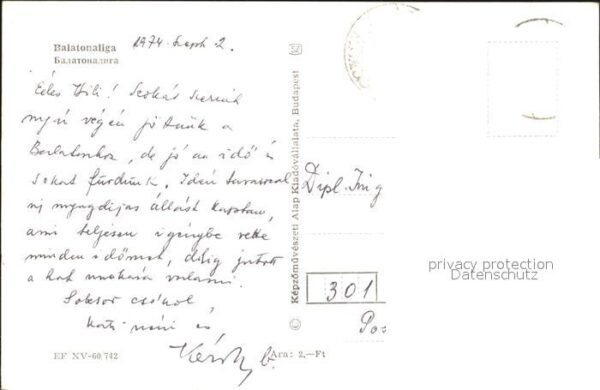 Balatonaliga
Балатоналига
1974. Szept. 2.
Édes Hili! Szokás szerint
nyár végén jöttünk a
Balatonhoz, de jó az idő és
sokat fürdünk. Idén tavasszal
új nyugdíjas állást kaptam,
ami teljesen igénybe vette
minden időmet, alig jutott
a hat unokára valami.
Sokszor csókol
Kati néni és
Dipl. Ing
301
Pos
Képzőművészeti Alap Kiadóvállalata, Budapest
EF XV-60/742
Ára: 2,-Ft
privacy protection
Datenschutz